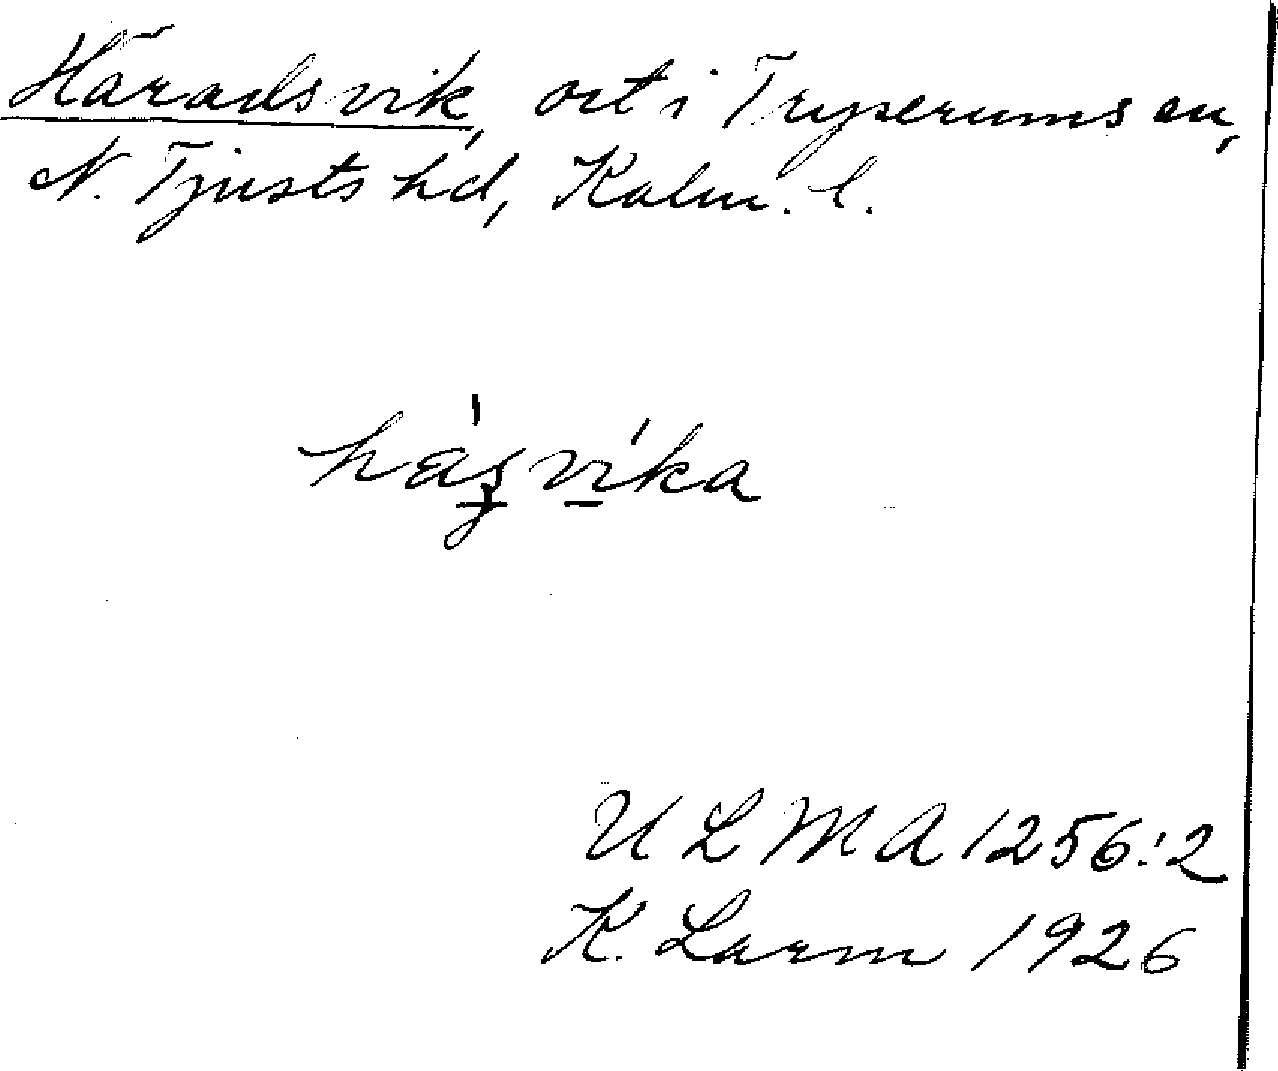 Häradsvik, ort i Tryserums sn,
N. Tjusts hd, Kalm. l.
hás̱víka
U L M A 1256:2
K. Larm 1926